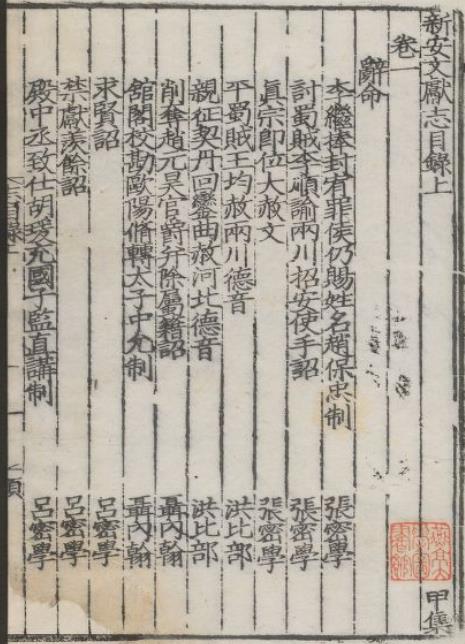 新安文獻志目錄上 甲集
卷一
辭命
李繼捧封宥罪侯仍賜姓名趙保忠制 張密學
討蜀賊李順諭兩川招安使手詔 張密學
眞宗即位大赦文 張密學
平蜀賊王均赦兩川德音 洪比部
親征契丹回鑾曲赦河北德音 洪比部
削奪趙元昊官爵幷除屬籍詔 聶內翰
舘閣校勘歐陽脩轉太子中允制 聶內翰
求賢詔 呂密學
禁獻羡餘詔 呂密學
殿中丞致仕胡瑗充國子監直講制 呂密學